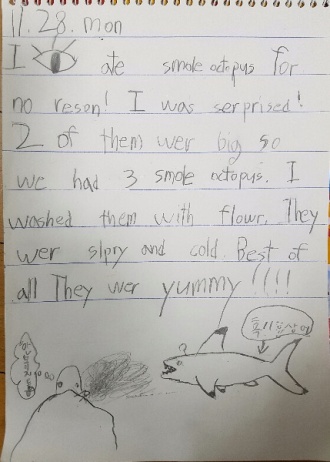 11. 28. mon
I ate smole octopus for
no reson! I was serprised!
2 of them wer big so
we had 3 smole octopus. I
washed them with flowr. They
wer slpry and cold. Best of
all They wer yummy!!!!
?